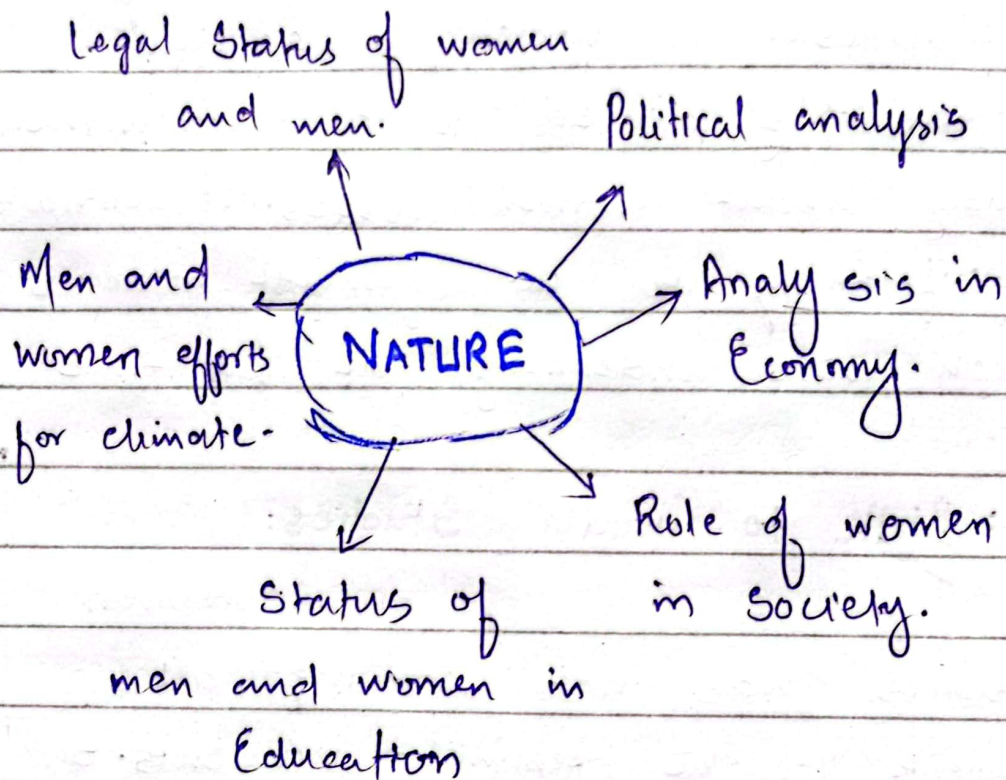 Legal Status of women
and men.
Political analysis
Men and
women efforts
for climate.
NATURE
Analysis in
Economy.
Role of women
in Society.
Status of
men and women in
Education